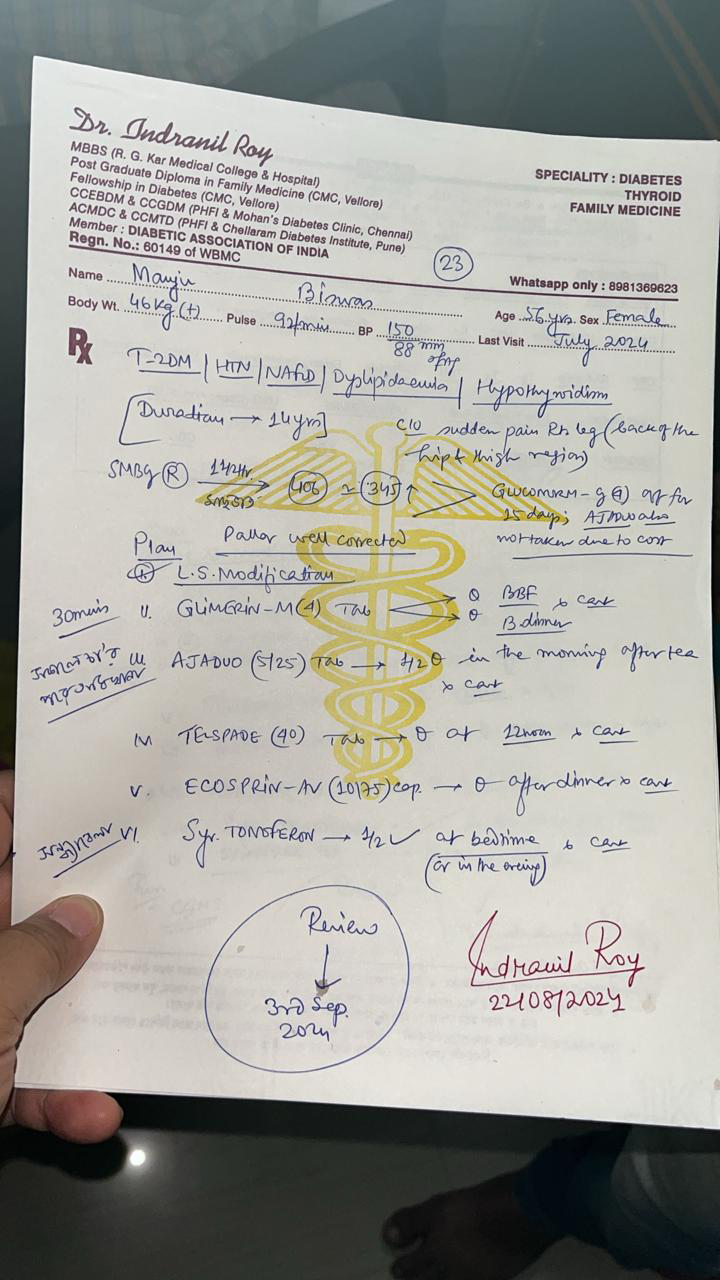 Dr. Indranil Roy
MBBS (R. G. Kar Medical College & Hospital)
Post Graduate Diploma in Family Medicine (CMC, Vellore)
Fellowship in Diabetes (CMC, Vellore)
CCEBDM & CCGDM (PHFI & Mohan's Diabetes Clinic, Chennai)
ACMDC & CCMTD (PHFI & Chellaram Diabetes Institute, Pune)
Member : DIABETIC ASSOCIATION OF INDIA
Regn. No.: 60149 of WBMC
SPECIALITY : DIABETES
THYROID
FAMILY MEDICINE
23
Whatsapp only : 8981369623
Name Manju Biswas Age 56 yrs. Sex Female
Body Wt. 46 kg (↑) Pulse 92/min BP 150/88 mm of Hg Last Visit July 2024
Rx
T-2DM | HTN | NAFLD | Dyslipidaemia | Hypothyroidism
[Duration → 14 yrs]
C/O sudden pain Rt. leg (back of the
hip & thigh region)
SMBG (R) 1 1/2 hr. → 406 ≃ 345 ↑
off for
15 days; AJADUO also
not taken due to cost
Plan Pallor well corrected
L.S. Modification
30 mins II. GLIMERIN-M (4) Tab
BBF x cont
B. dinner
III. AJADUO (5/25) Tab → 1/2 in the morning after tea
x cont
IV TELSPADE (40) Tab → at 12 noon x cont
V. ECOSPRIN-AV (10/75) cap. → after dinner x cont
VI. Syr. TONOFERON → 1/2 at bedtime x cont
(or in the evening)
Review
↓
3rd Sep.
2024
Indranil Roy
22/08/2024